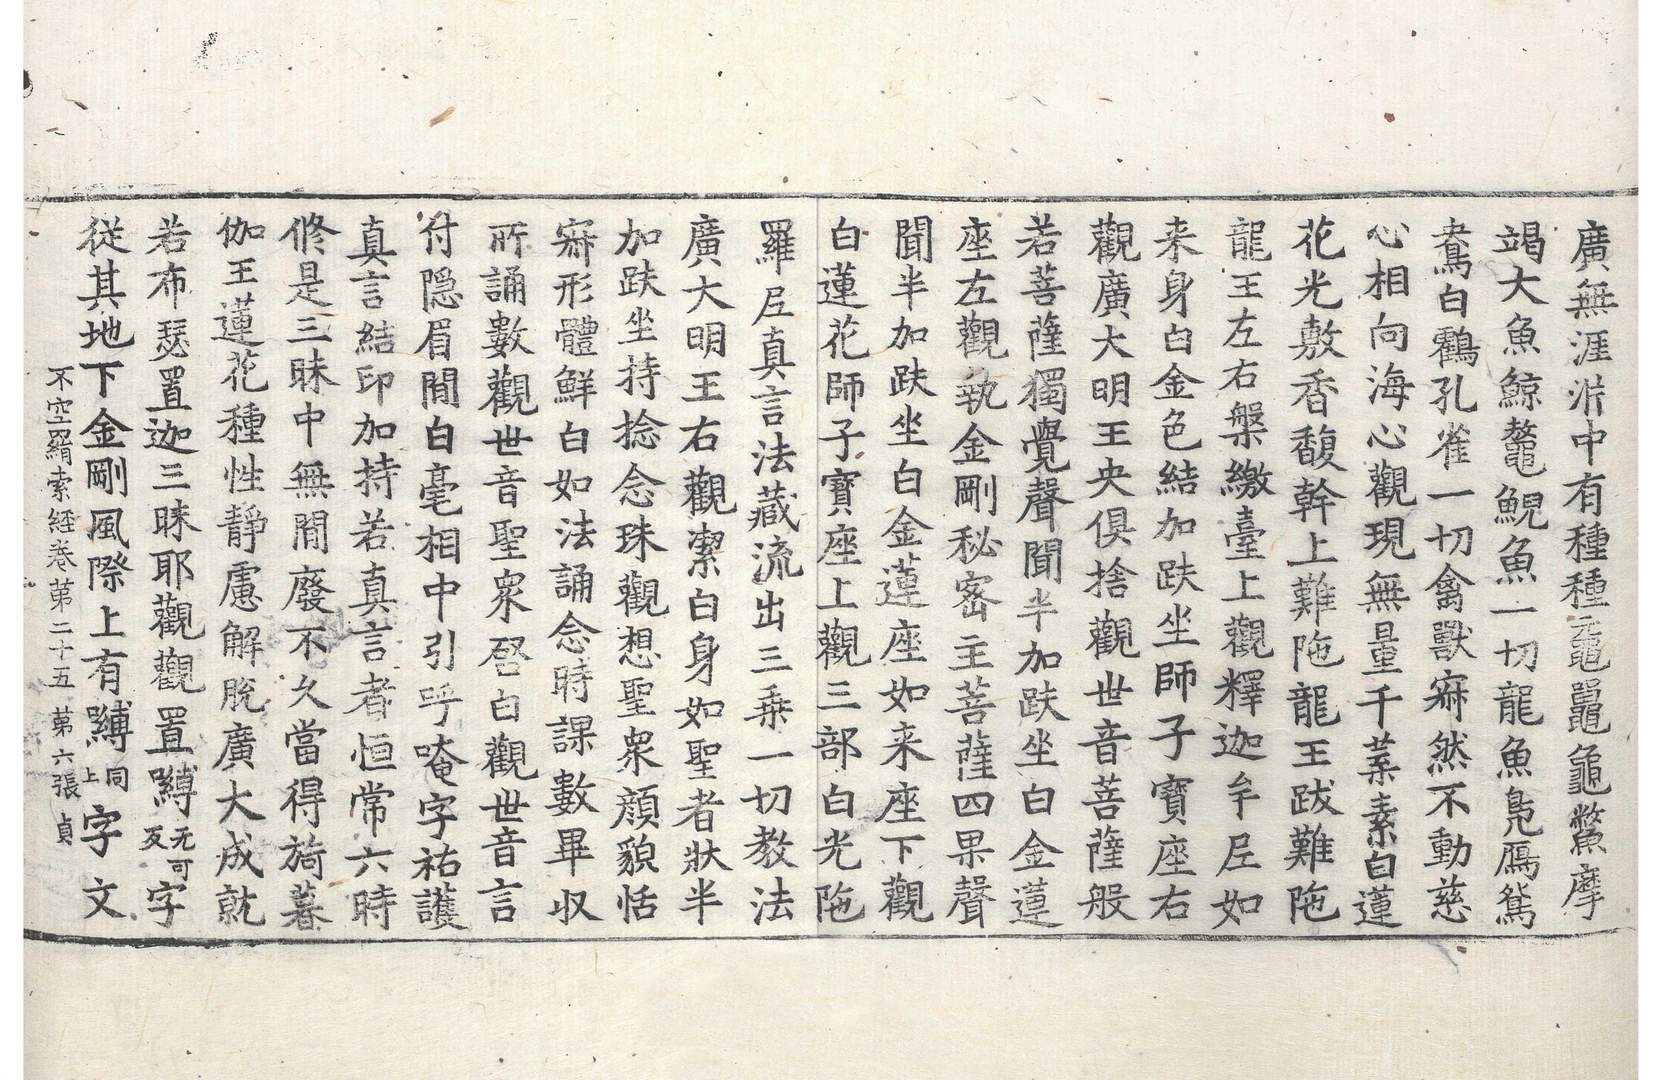 廣無涯涘中有種種黿鼉龜鱉摩
竭大魚鯨鼇鯢魚一切龍魚鳧鴈鴛
鴦白鸖孔雀一切禽獸寂然不動慈
心相向海心觀現無量千葉素白蓮
花光敷香馥幹上難陁龍王跋難陁
龍王左右槃繳臺上觀釋迦牟尼如
来身白金色結加趺坐師子寶座右
觀廣大明王央俱捨觀世音菩薩般
若菩薩獨覺聲聞半加趺坐白金蓮
座左觀執金剛秘密主菩薩四果聲
聞半加趺坐白金蓮座如来座下觀
白蓮花師子寶座上觀三部白光陁
羅尼真言法藏流出三乗一切教法
廣大明王右觀潔白身如聖者狀半
加趺坐持捻念珠觀想聖衆顔貌恬
寂形體鮮白如法誦念時課數畢収
所誦數觀世音聖衆啓白觀世音言
付隐眉間白毫相中引呼唵字祐護
真言結印加持若真言者恒常六時
修是三昧中無間廢不久當得旖暮
伽王蓮花種性靜慮解脫廣大成就
若布瑟置迦三昧耶觀觀置嚩无可反字
従其地下金剛風際上有嚩同上字文
不空羂索經卷苐二十五 苐六張 貞